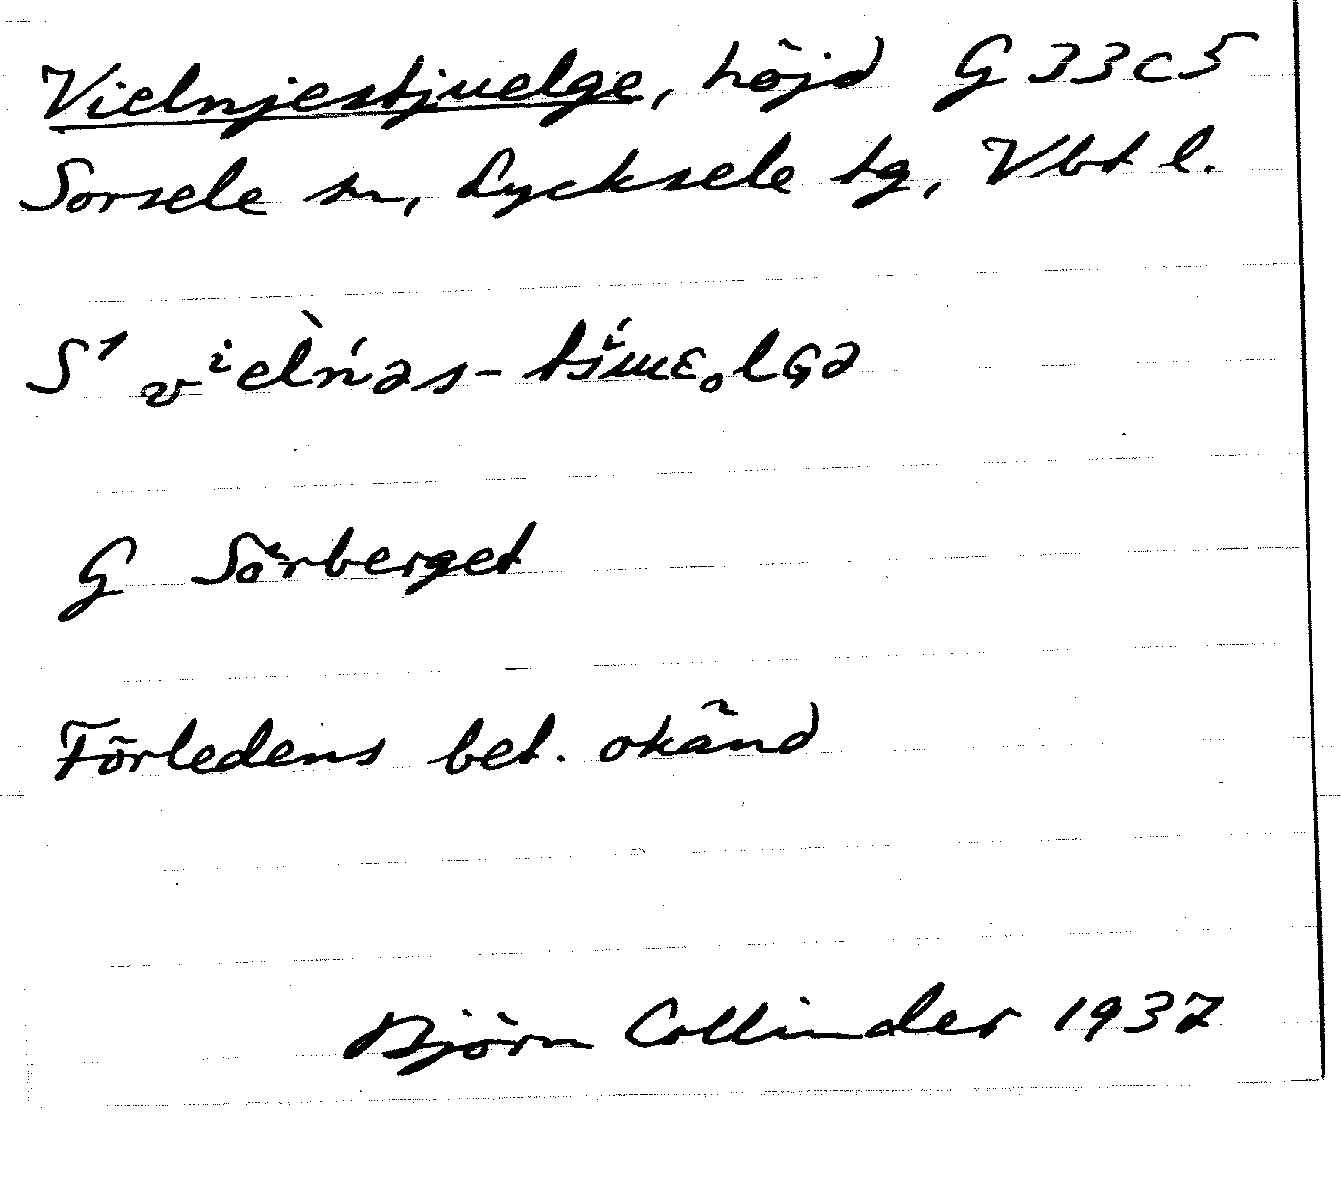 Vielnjestjuelge, höjd G 33 c 5
Sorsele sn, Lycksele tg, Vbt l.
S¹
G Sörberget
Förledens bet. okänd
Björn Collinder 1937